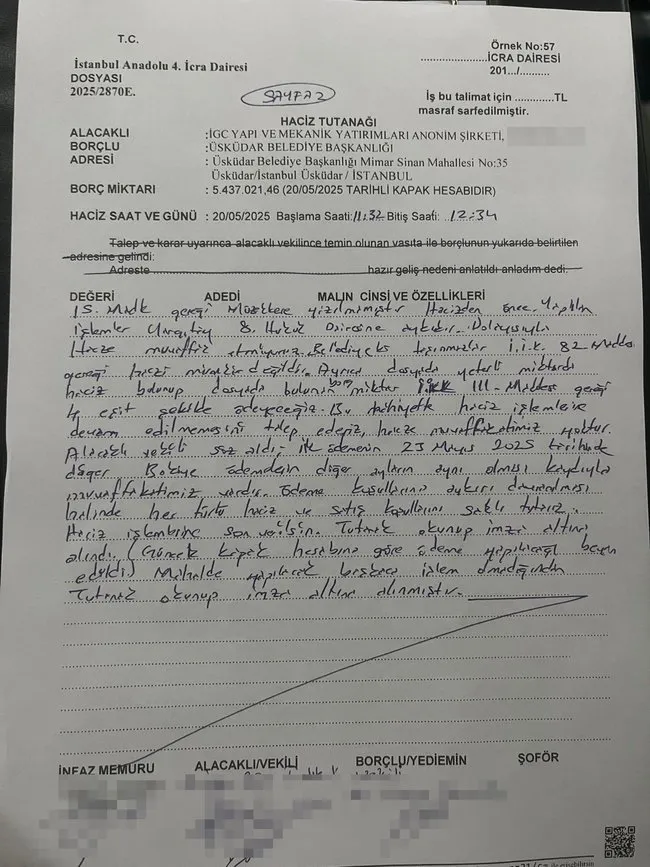 T.C.
Örnek No:57
İCRA DAİRESİ
201.../..........
İstanbul Anadolu 4. İcra Dairesi
DOSYASI
2025/2870E.
SAYFA 2
İş bu talimat için ............TL
masraf sarfedilmiştir.
HACİZ TUTANAĞI
ALACAKLI :İGC YAPI VE MEKANİK YATIRIMLARI ANONİM ŞİRKETİ,
BORÇLU :ÜSKÜDAR BELEDİYE BAŞKANLIĞI
ADRESİ : Üsküdar Belediye Başkanlığı Mimar Sinan Mahallesi No:35
Üsküdar/İstanbul Üsküdar / İSTANBUL
BORÇ MİKTARI : 5.437.021,46 (20/05/2025 TARİHLİ KAPAK HESABIDIR)
HACİZ SAAT VE GÜNÜ : 20/05/2025 Başlama Saati:11:32 Bitiş Saati: 12:34
Talep ve karar uyarınca alacaklı vekilince temin olunan vasıta ile borçlunun yukarıda belirtilen
adresine gelindi.
Adreste hazır geliş nedeni anlatıldı anladım dedi.
DEĞERİ ADEDİ MALIN CİNSİ VE ÖZELLİKLERİ
15. Madde gereği Müzekkere yazılmamıştır Hacizden önce yapılan
işlemler Yargıtay 8. Hukuk Dairesine aykırıdır. Dolayısıyla
Hacze muvaffakat etmiyoruz. Belediyeks taşınmazlar i.i.k. 82 Madde
gereği haczi mümkün değildir. Ayrıca dosyada yeterli miktarda
haciz bulunup dosyada bulunan miktar İİK 111. Maddesi gereği
4 eşit şekilde ödeyeceğiz. Bu nihiyetle haciz işlemlerine
devam edilmemesini talep ederiz, hacze muvaffakatimiz yoktur.
Alacaklı vekili söz aldı; ilk ödemenin 23 Mayıs 2025 tarihinde
diğer Bakiye ödemelerin diğer ayların aynı olması kaydıyla
muvaffakatimiz vardır. Ödeme koşullarına aykırı davranılması
halinde her türlü haciz ve satış koşullarını saklı tutarız.
Haciz işlemlerine son verilsin. Tutanak okunup imza altına
alındı. (Güncel kapak hesabına göre ödeme yapılacağı beyan
edildi) Mahalde yapılacak başkaca işlem olmadığından
Tutanak okunup imza altına alınmıştır.
İNFAZ MEMURU ALACAKLI/VEKİLİ BORÇLU/YEDİEMİN ŞOFÖR